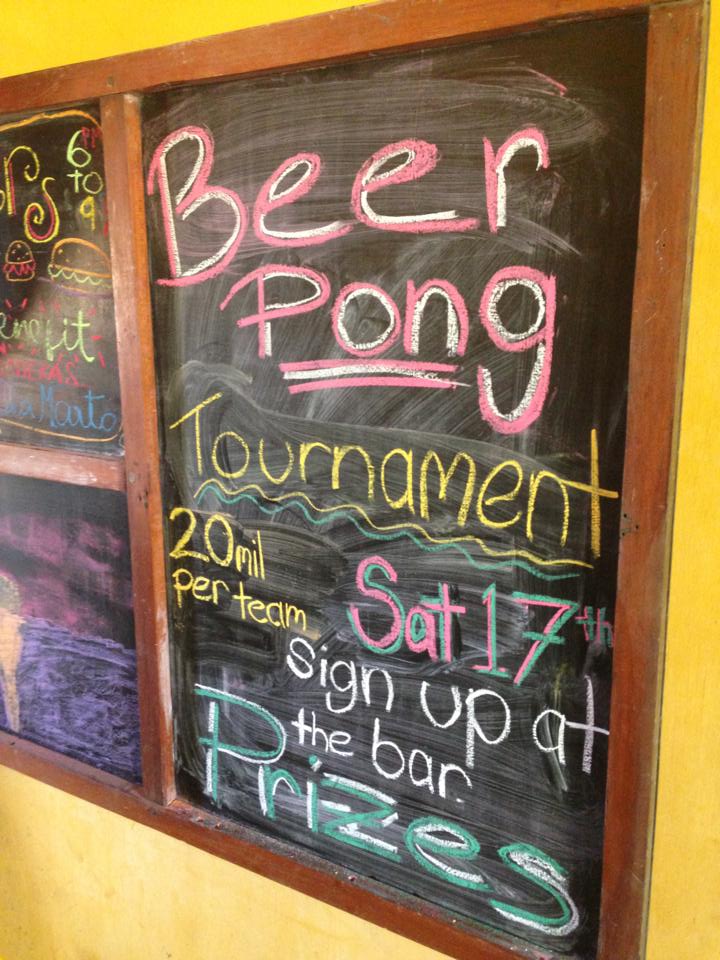 6
to
9
Beer
Pong
Tournament
20mil
per team
Sat 17th
Sign up at
the bar.
Prizes